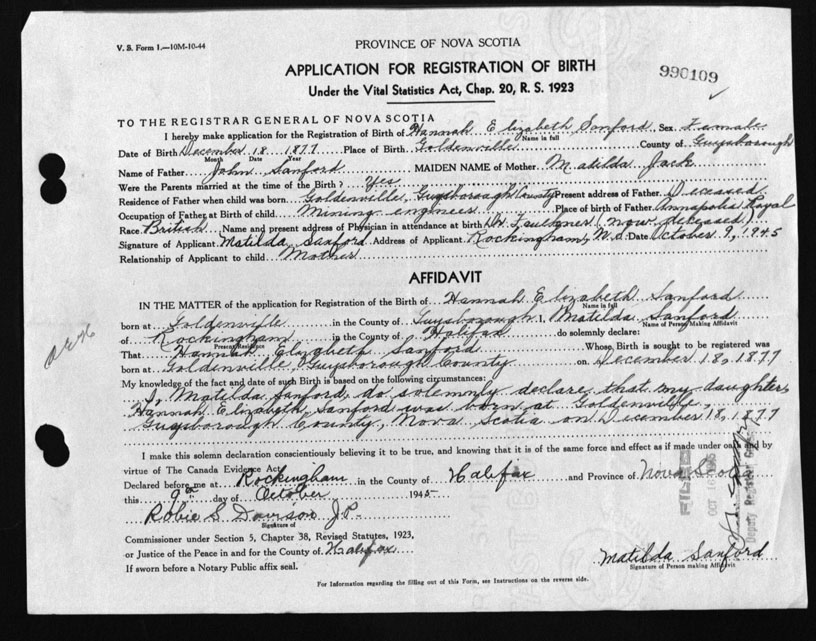 V. S. Form 1.—10M-10-44
PROVINCE OF NOVA SCOTIA
APPLICATION FOR REGISTRATION OF BIRTH
990109
Under the Vital Statistics Act, Chap. 20, R. S. 1923
TO THE REGISTRAR GENERAL OF NOVA SCOTIA
I hereby make application for the Registration of Birth of Hannah Elizabeth Sanford Sex Female
Name in full
Date of Birth December 18 1877 Place of Birth Goldenville County of Guysborough
Month Date Year
Name of Father John Sanford MAIDEN NAME of Mother Matilda Jack
Were the Parents married at the time of the Birth? Yes
Residence of Father when child was born. Goldenville, Guysborough County Present address of Father Deceased
Occupation of Father at Birth of child Mining engineer Place of birth of Father Annapolis Royal
Race British Name and present address of Physician in attendance at birth Dr. (now deceased)
Signature of Applicant Matilda Sanford Address of Applicant Rockingham, N.S. Date October 9, 1945
Relationship of Applicant to child Mother
AFFIDAVIT
IN THE MATTER of the application for Registration of the Birth of Hannah Elizabeth Sanford
Name in full
born at Goldenville in the County of Guysborough I, Matilda Sanford
Name of Person Making Affidavit
of Rockingham in the County of Halifax do solemnly declare:
Present Residence
That Hannah Elizabeth Sanford Whose Birth is sought to be registered was
born at Goldenville Guysborough County on December 18, 1877
My knowledge of the fact and date of such Birth is based on the following circumstances:
I, Matilda Sanford, do solemnly declare that my daughter,
Hannah Elizabeth Sanford was born at Goldenville,
Guysborough County, Nova Scotia on December 18, 1877
I make this solemn declaration conscientiously believing it to be true, and knowing that it is of the same force and effect as if made under oath and by
virtue of The Canada Evidence Act.
Declared before me at Rockingham in the County of Halifax and Province of Nova Scotia
this 9th day of October 1945
Robie S Davison J.P.
Signature of
Commissioner under Section 5, Chapter 38, Revised Statutes, 1923,
or Justice of the Peace in and for the County of Halifax
If sworn before a Notary Public affix seal.
FILED
OCT
Deputy Registrar
Matilda Sanford
Signature of Person making Affidavit
For Information regarding the filling out of this Form, see Instructions on the reverse side.